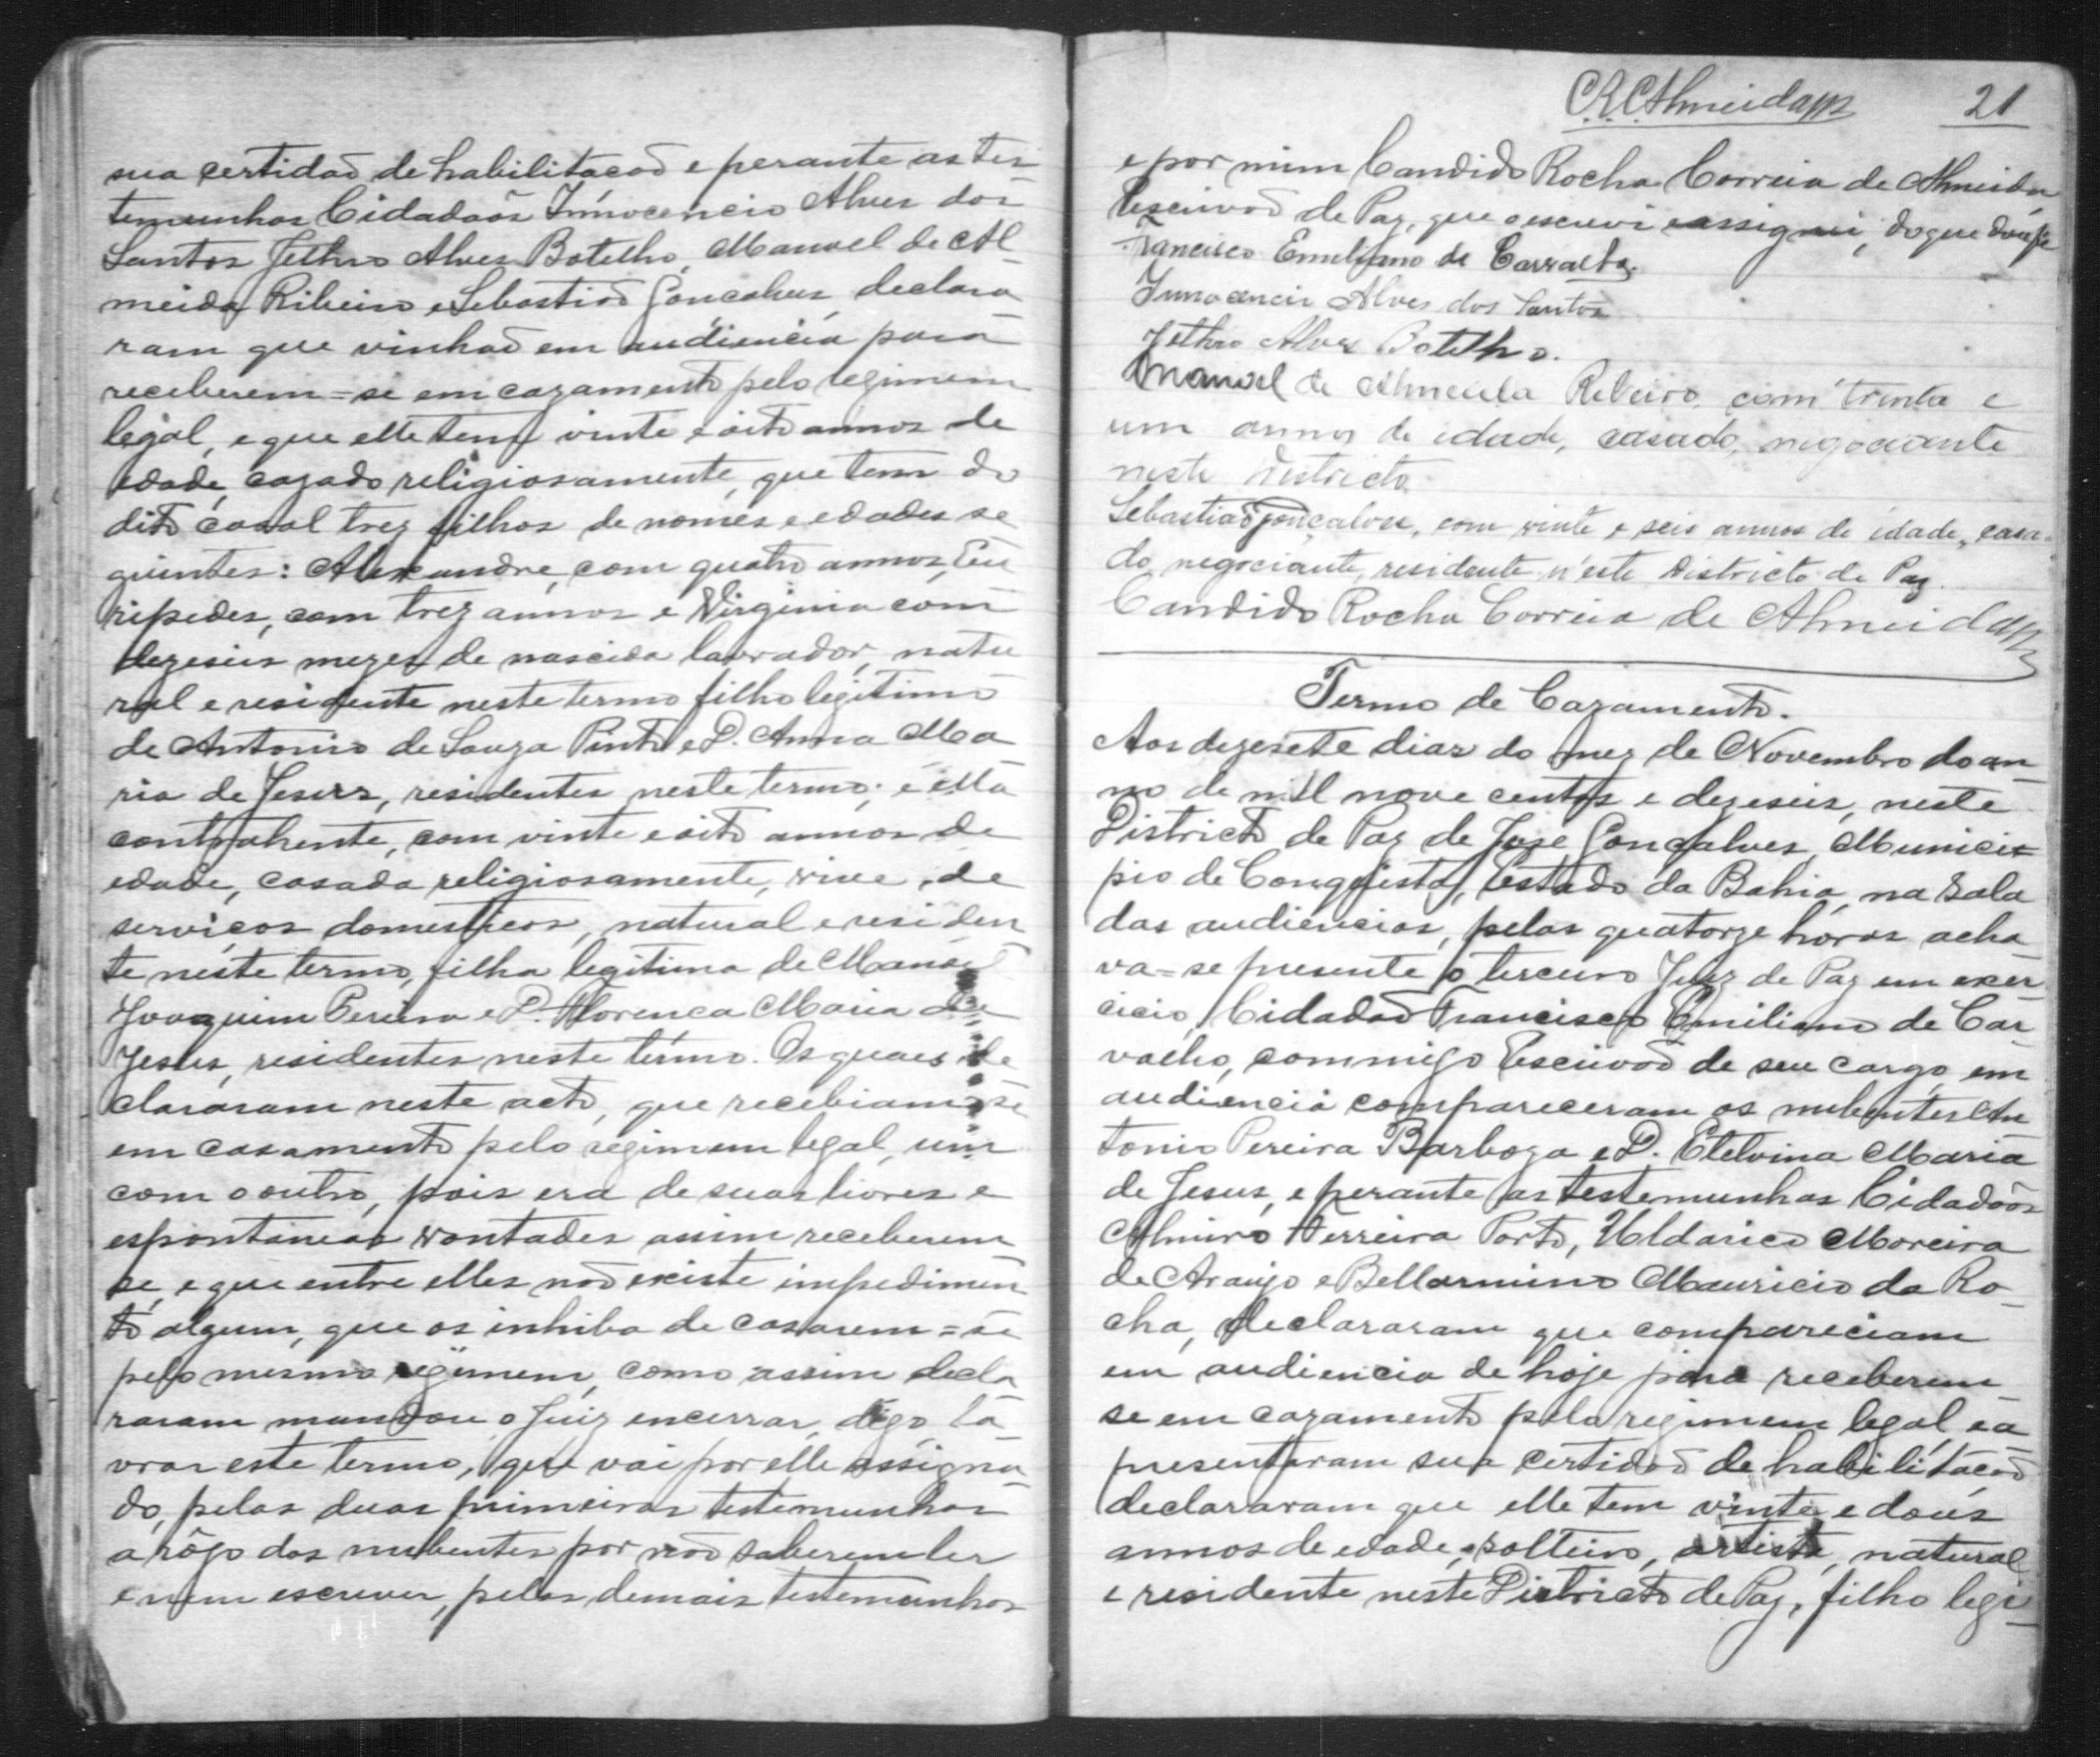 sua certidaõ de habilitacaõ e perante as tes
temunhas Cidadaõs Innocencio Alves dos
Santos Jethro Alves Botelho, Manoel de Al
meida Ribeiro e Sebastiaõ Goncalves, declara
ram que vinhaõ em audiencia para
receberem=se em cazamento pelo regimem
legal, e que elle tem vinte e oito annos de
edade, cazado religiosamente, que tem do
dito casal trez filhos de nomes e edades se
guintes: Alexandre, com quatro annos, Eu
ripedes, com trez annos e Virginia com
dezeseis mezes de nascida lavrador, natu
ral e residente neste termo filho legitimo
de Antonio de Souza Pinto e D. Anna Ma
ria de Jesus, residentes neste termo; e ella
contrahente, com vinte e oito annos de
edade, casada religiosamente, vive de
serviços domesticos, natural e residen
te neste termo, filha legitima de Manoel
Joaquim Pereira e D. Florenca Maria de
Jesus, residentes neste termo. Os quaes de
clararam neste acto, que recebiam=se
em casamento pelo regimem legal, um
com o outro, pois era de suas livres e
espontaneas vontades assim receberem
se, e que entre elles naõ existe impedimen
to algum, que os inhiba de casarem=se
pelo mesmo regimem, como assim decla
raram mandou o Juiz encerrar, digo, la
vrar este termo, que vai por elle assigna
do, pelas duas primeiras testemunhas
a rôgo dos nubentes por naõ saberem ler
e nem escrever, pelas demais testemunhas
C.R.C.Almeida 21
e por mim Candido Rocha Correia de Almeida
Escrivaõ de Paz, que o escrevi e assignei, do que dou fé
Francisco Emiliano de Carvalho.
Innocencio Alves dos Santos
Jethro Alves Botelho.
Manoel de Almeida Ribeiro, com trinta e
um annos de idade, casado, negociante
neste Districto.
Sebastiaõ Gonçalves, com vinte e seis annos de idade, casa-
do, negociante, residente n'este Districto de Paz.
Candido Rocha Correia de Almeida
Termo de Cazamento.
Aos dezesete dias do mez de Novembro do an
no de mil nove centos e dezeseis, neste
Districto de Paz de José Gonçalves, Munici=
pio de Conquista, Estado da Bahia, na sala
das audiencias, pelas quatorze horas acha
va=se presente o terceiro Juiz de Paz em exer
cicio, Cidadaõ Francisco Emiliano de Car
valho, commigo Escrivaõ de seu cargo, em
audiencia compareceram os nubentes An
tonio Pereira Barboza e D. Etelvina Maria
de Jesus, e perante as testemunhas Cidadaõs
Almiro Ferreira Porto, Uldarico Moreira
de Araujo e Bellarmino Mauricio da Ro-
cha, declararam que compareciam
em audiencia de hoje para receberem-
se em cazamento pelo regimem legal, e a
presentaram sua certidaõ de habilitacaõ
declararam que elle tem vinte e dous
annos de edade, solteiro, artista, natural
e residente neste Districto de Paz, filho legi-